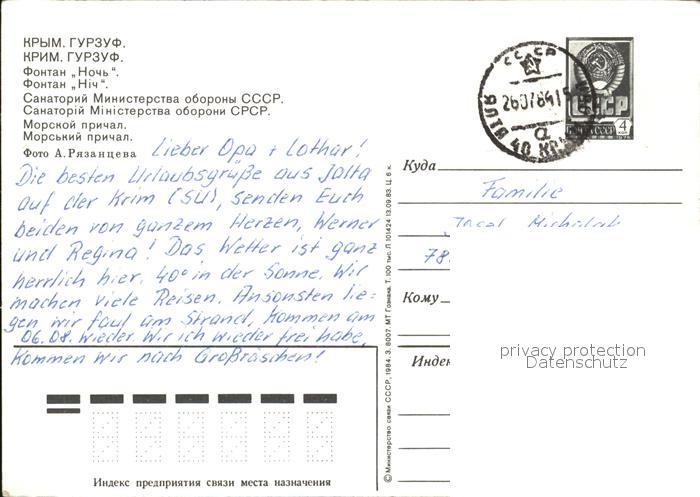 КРЫМ. ГУРЗУФ.
КРИМ. ГУРЗУФ.
Фонтан „Ночь“.
Фонтан „Ніч“.
Санаторий Министерства обороны СССР.
Санаторій Міністерства оборони СРСР.
Морской причал.
Морський причал.
Фото А. Рязанцева
Lieber Opa + Lothar!
Die besten Urlaubsgrüße aus Jalta
auf der Krim (SU), senden Euch
beiden von ganzem Herzen, Werner
und Regina! Das Wetter ist ganz
herrlich hier, 40° in der Sonne. Wir
machen viele Reisen. Ansonsten lie-
gen wir faul am Strand, kommen am
06.08. wieder. Wir ich wieder frei habe,
kommen wir nach Großräschen!
Индекс предприятия связи места назначения
© Министерство связи СССР, 1984. З. 8007. МТ Гознака. Т. 100 тыс. Л 101424 13.09.83. Ц. 6 к.
СССР
260784 15
СССР
ПОЧТА СССР 4
Куда
Familie
78
Кому
Индек
privacy protection
Datenschutz